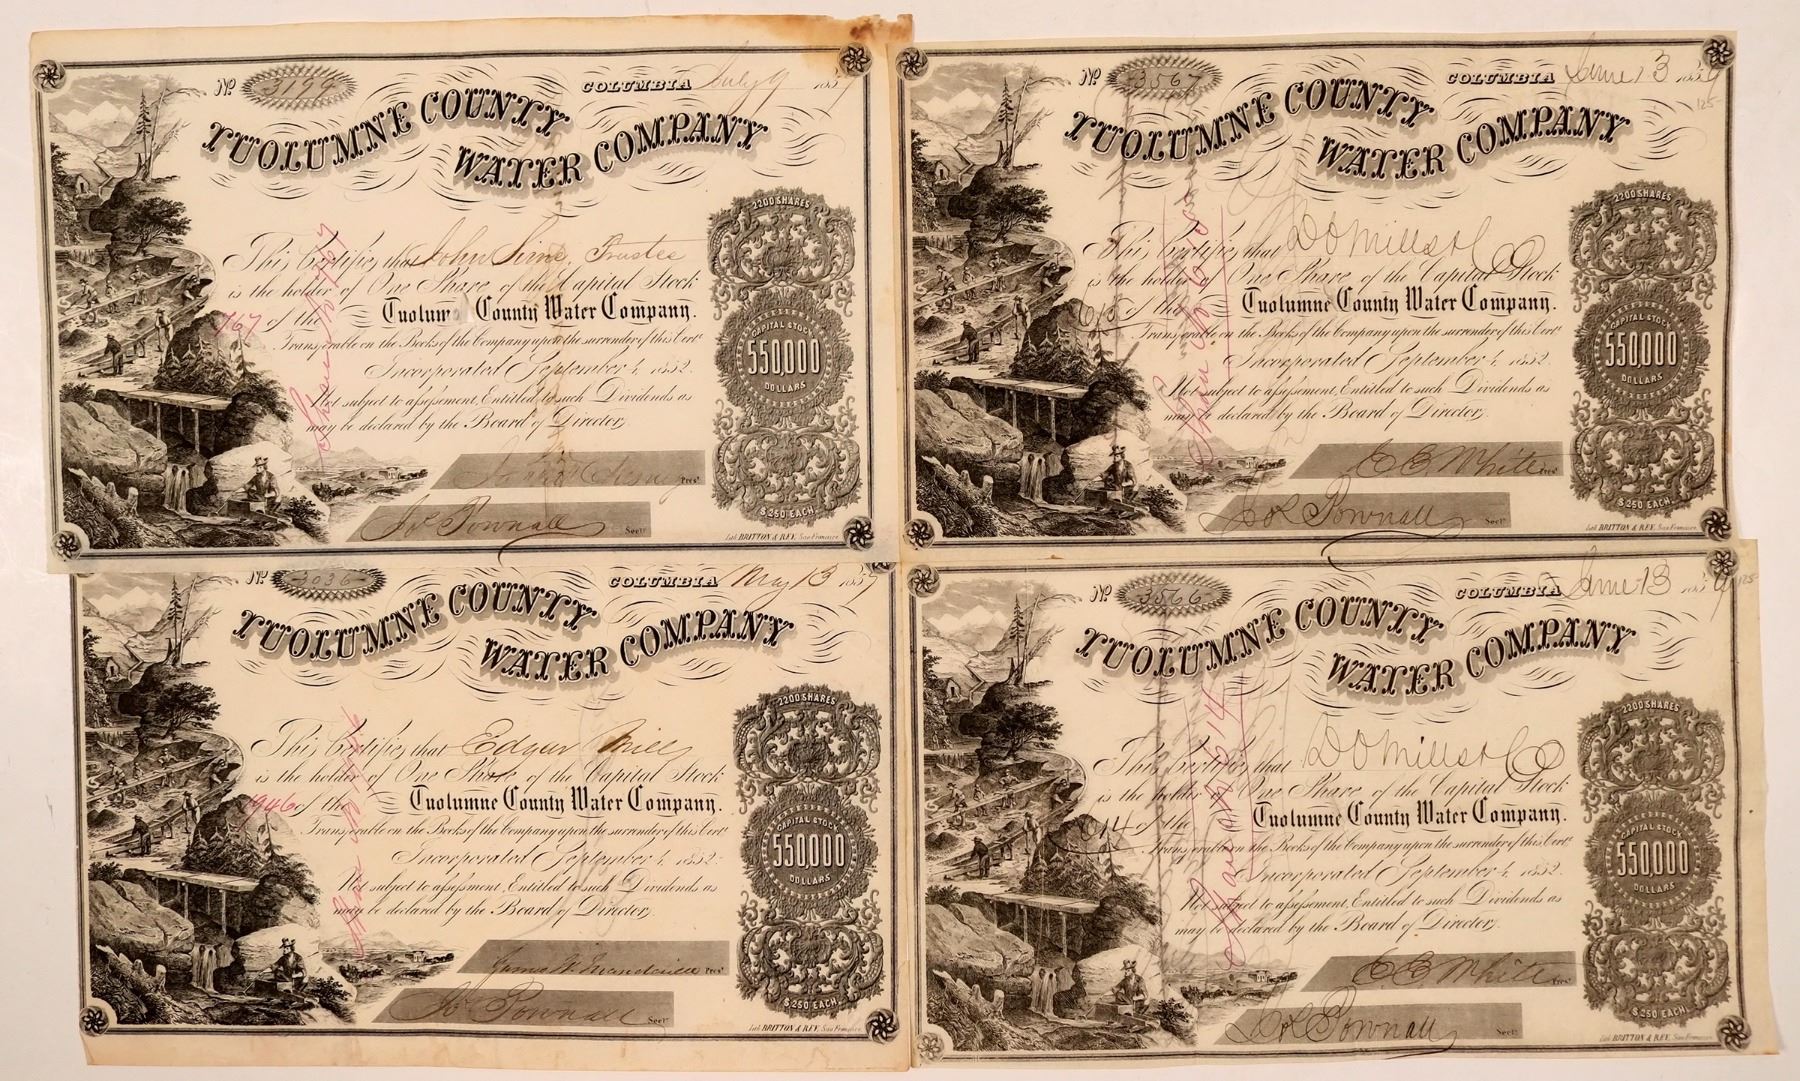 No 3199 COLUMBIA July 9 185
TUOLUMNE COUNTY
WATER COMPANY
2200 SHARES
This Certifies that John Sime, Trustee
is the holder of One Share of the Capital Stock
767 of the Tuolumne County Water Company.
Transferable on the Books of the Company upon the surrender of this Certe.
Incorporated September 4, 1852.
Not subject to assessment, Entitled to such Dividends as
may be declared by the Board of Directors.
CAPITAL STOCK
550,000
DOLLARS
$250 EACH
Share No 767
Prest
Jos Pownall Secty
Lith. BRITTON & REY, San Francisco
No 3567 COLUMBIA June 13 1859
125-
TUOLUMNE COUNTY
WATER COMPANY
2200 SHARES
This Certifies that D O Mills & Co
is the holder of One Share of the Capital Stock
of the Tuolumne County Water Company.
Transferable on the Books of the Company upon the surrender of this Certe.
Incorporated September 4, 1852.
Not subject to assessment, Entitled to such Dividends as
may be declared by the Board of Directors.
CAPITAL STOCK
550,000
DOLLARS
$250 EACH
E E White Prest
Jos Pownall Secty
Lith. BRITTON & REY, San Francisco
No 3036 COLUMBIA May 13 1857
TUOLUMNE COUNTY
WATER COMPANY
2200 SHARES
This Certifies that Edgar Mills
is the holder of One Share of the Capital Stock
1946 of the Tuolumne County Water Company.
Transferable on the Books of the Company upon the surrender of this Certe.
Incorporated September 4, 1852.
Not subject to assessment, Entitled to such Dividends as
may be declared by the Board of Directors.
CAPITAL STOCK
550,000
DOLLARS
$250 EACH
Share No 1946
James W. Mandeville Prest
Jos Pownall Secty
Lith. BRITTON & REY, San Francisco
No 3566 COLUMBIA June 13 1859
125-
TUOLUMNE COUNTY
WATER COMPANY
2200 SHARES
This Certifies that D O Mills & Co
is the holder of One Share of the Capital Stock
614 of the Tuolumne County Water Company.
Transferable on the Books of the Company upon the surrender of this Certe.
Incorporated September 4, 1852.
Not subject to assessment, Entitled to such Dividends as
may be declared by the Board of Directors.
CAPITAL STOCK
550,000
DOLLARS
$250 EACH
Share No 614
E E White Prest
Jos Pownall Secty
Lith. BRITTON & REY, San Francisco